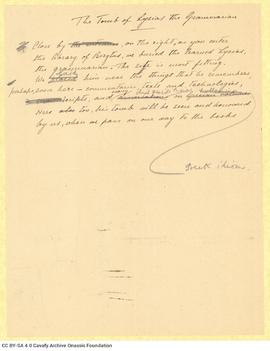 The Tomb of Lysias the Grammarian
Close by on the right, as you enter
the library of Beirytus, we buried the learned Lysias,
the grammarian. The site is most fitting.
We placed him near the things that he remembers
perhaps even here — commentaries, texts and technologies,
scripts, and
Here also too, his tomb will be seen and honoured
by us, when we pass on our way to the books
CC BY-SA 4 0 Cavafy Archive Onassis Foundation